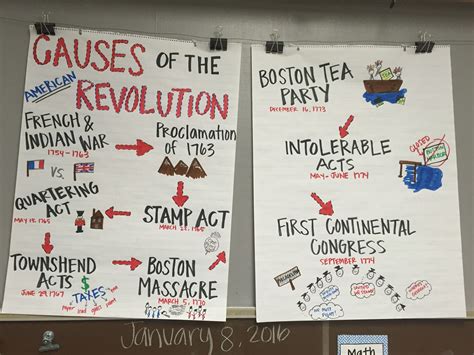 CAUSES OF THE
AMERICAN
REVOLUTION
FRENCH &
INDIAN WAR
1754-1763
VS.
Proclamation
of 1763
QUARTERING
ACT
May 15, 1765
STAMP ACT
MARCH 22, 1765
TOWNSHEND
ACTS
June 29, 1767
$
TAXES
paper lead glass paint
BOSTON
MASSACRE
MARCH 5, 1770
BOSTON TEA
PARTY
DECEMBER 16, 1773
INTOLERABLE
ACTS
MAY-JUNE 1774
CLOSED
FIRST CONTINENTAL
CONGRESS
SEPTEMBER 1774
PHILADELPHIA
January 8, 2016
Math